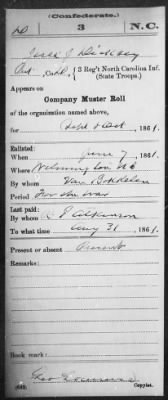 (Confederate.)
3 N.C.
Pvt., Co. D, { 3 Reg't North Carolina Inf.
(State Troops.)
Appears on
Company Muster Roll
of the organization named above,
for Sept & Oct, 1861.
Enlisted:
When June 7, 1861.
Where Wilmington N.C.
By whom Van Bokkelen
Period For the war
Last paid:
By whom
To what time Aug 31, 1861.
Present or absent Present
Remarks:
Book mark:
Copyist.